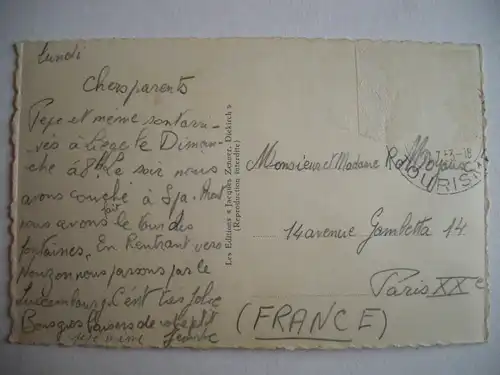 Lundi
Chers parents
Pepe et mémé sont arri-
vés à Liège le Diman-
che à 8h Le soir nous
avons couché à Spa.
nous avons fait le tour des
fontaines. En Rentrant vers
nous passons par le
Luxembourg. C'est très jolie
Bons gros Baisers de
pepe meme
Les Editions « Jacques Zenner, Diekirch »
(Reproduction interdite)
Monsieur et Madame R.
14 avenue Gambetta 14.
Paris XXe
(FRANCE)
TOURIS